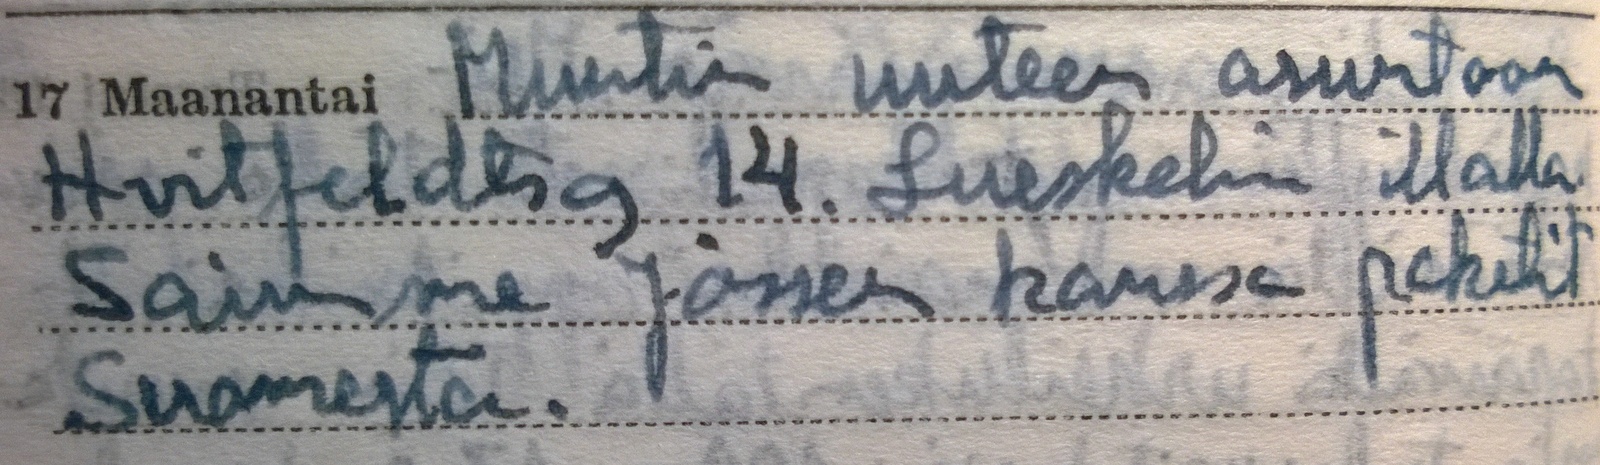 17 Maanantai Muutin uuteen asuntoon
Hvitfeldtsg 14. Lueskelin illalla.
Saimme Jossen kanssa paketit
Suomesta.